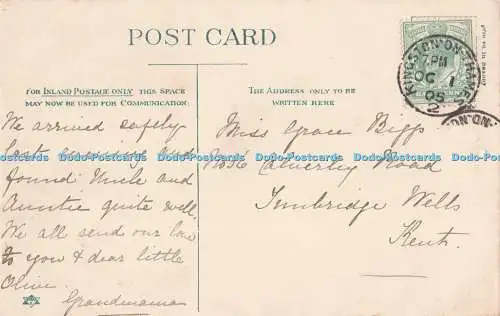 POST CARD
FOR INLAND POSTAGE ONLY THIS SPACE
MAY NOW BE USED FOR COMMUNICATION:
THE ADDRESS ONLY TO BE
WRITTEN HERE
We arrived safely
last evening and
found Uncle and
Auntie quite well.
We all send our love
to you & dear little
Olive.
Grandmama
Miss Grace Biggs
No 36 Calverley Road
Tunbridge Wells
Kent.
KINGSTON-ON-THAMES
7 PM
OC 1
05
2
Dodo-Postcards Dodo-Postcards Dodo-Postcards Dodo-Postcards Dodo-Postcards